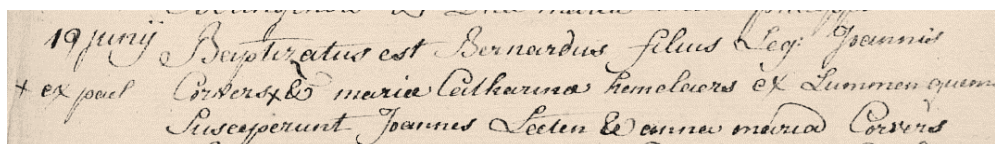 19 junÿ Baptizatus est Bernardus filius Leg: Joannis
+ ex pael Corvers + & maria Catharina hemelaers ex Lummen quem
Susceperunt Joannes Leeten & anna maria Corvers